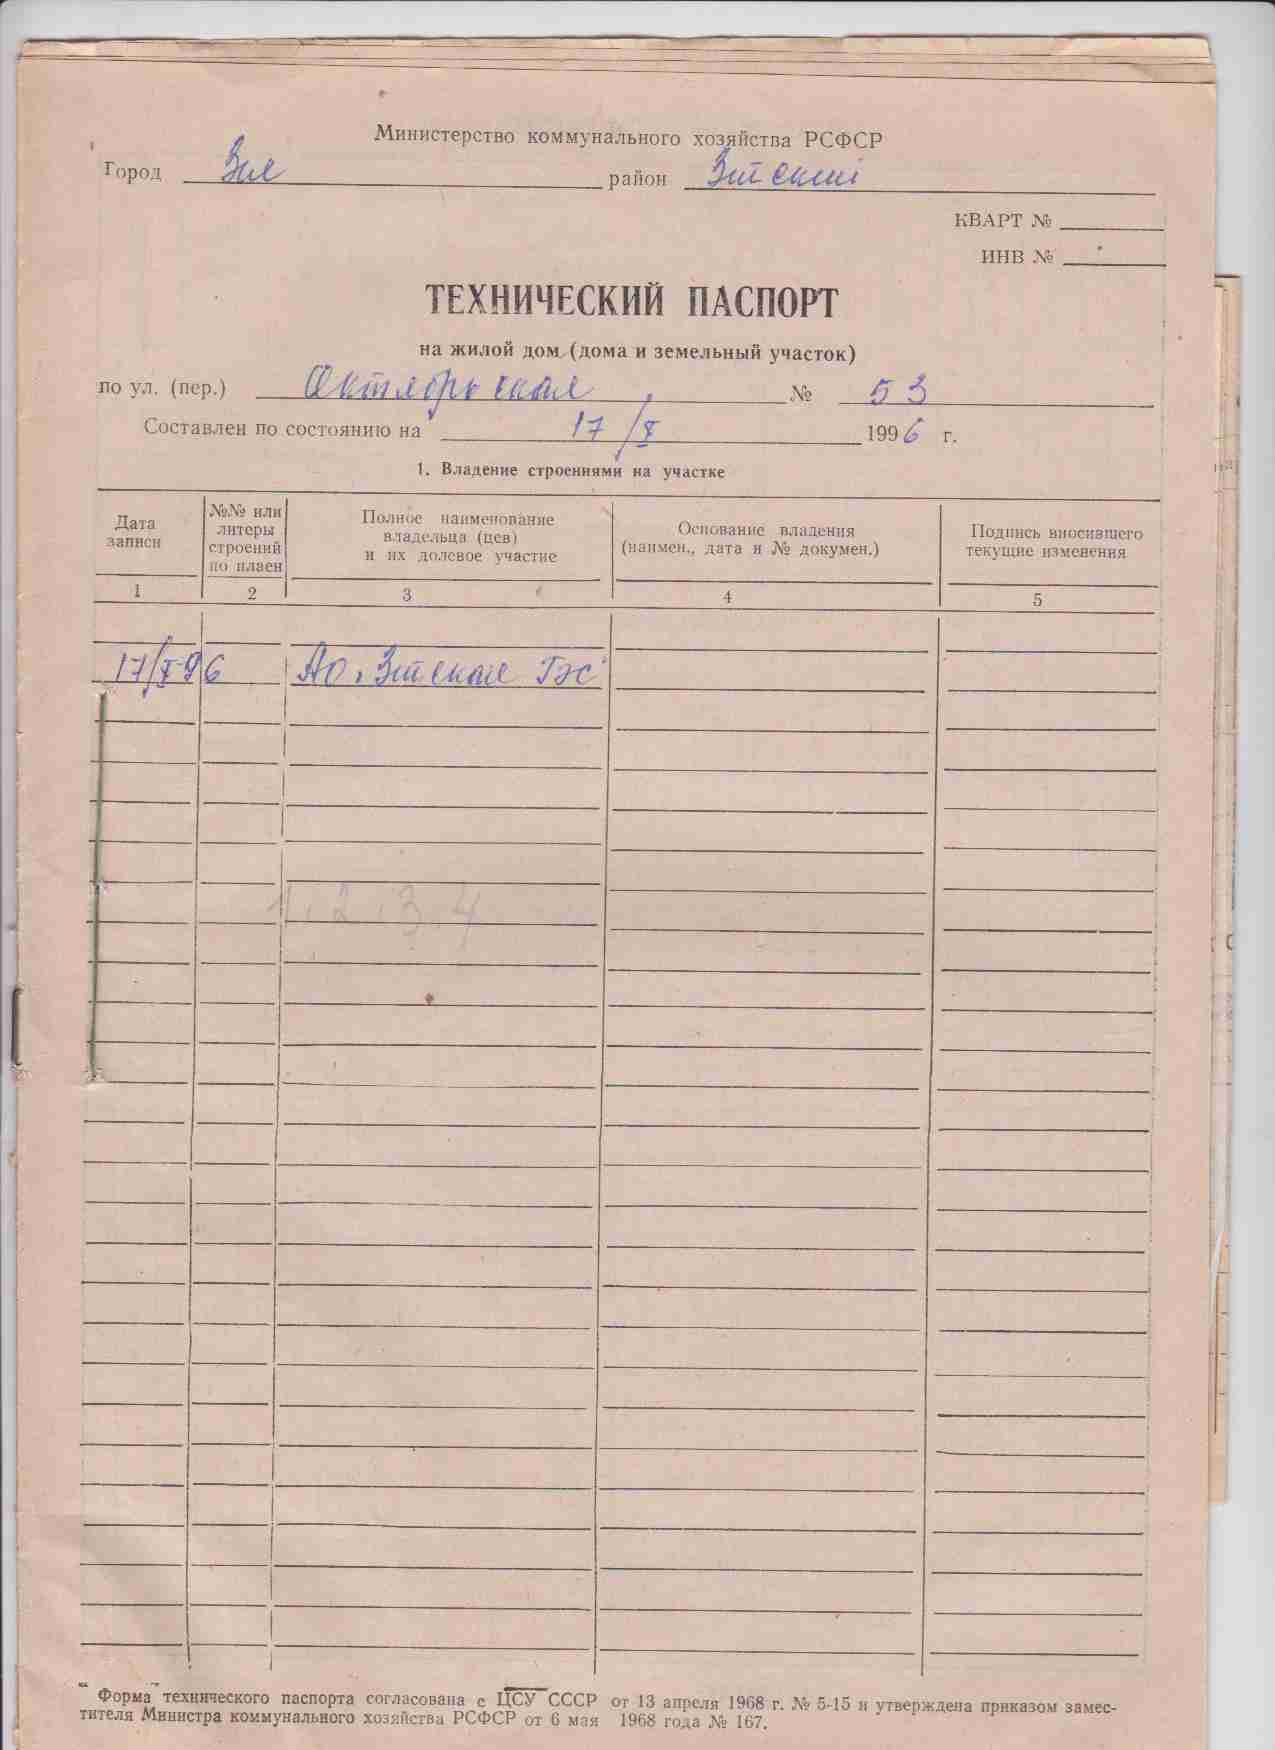 Министерство коммунального хозяйства РСФСР
Город Зея район Зейский
КВАРТ №
ИНВ №
ТЕХНИЧЕСКИЙ ПАСПОРТ
на жилой дом (дома и земельный участок)
по ул. (пер.) Октябрьская № 53
Составлен по состоянию на 17/X 1996 г.
1. Владение строениями на участке
Дата записи
№№ или литеры строений по плаен
Полное наименование владельца (цев) и их долевое участие
Основание владения (наимен., дата и № докумен.)
Подпись вносившего текущие изменения
1 2 3 4 5
17/X-96 АО "Зейская ГЭС"
1. 2. 3. 4
Форма технического паспорта согласована с ЦСУ СССР от 13 апреля 1968 г. № 5-15 и утверждена приказом замес-
тителя Министра коммунального хозяйства РСФСР от 6 мая 1968 года № 167.